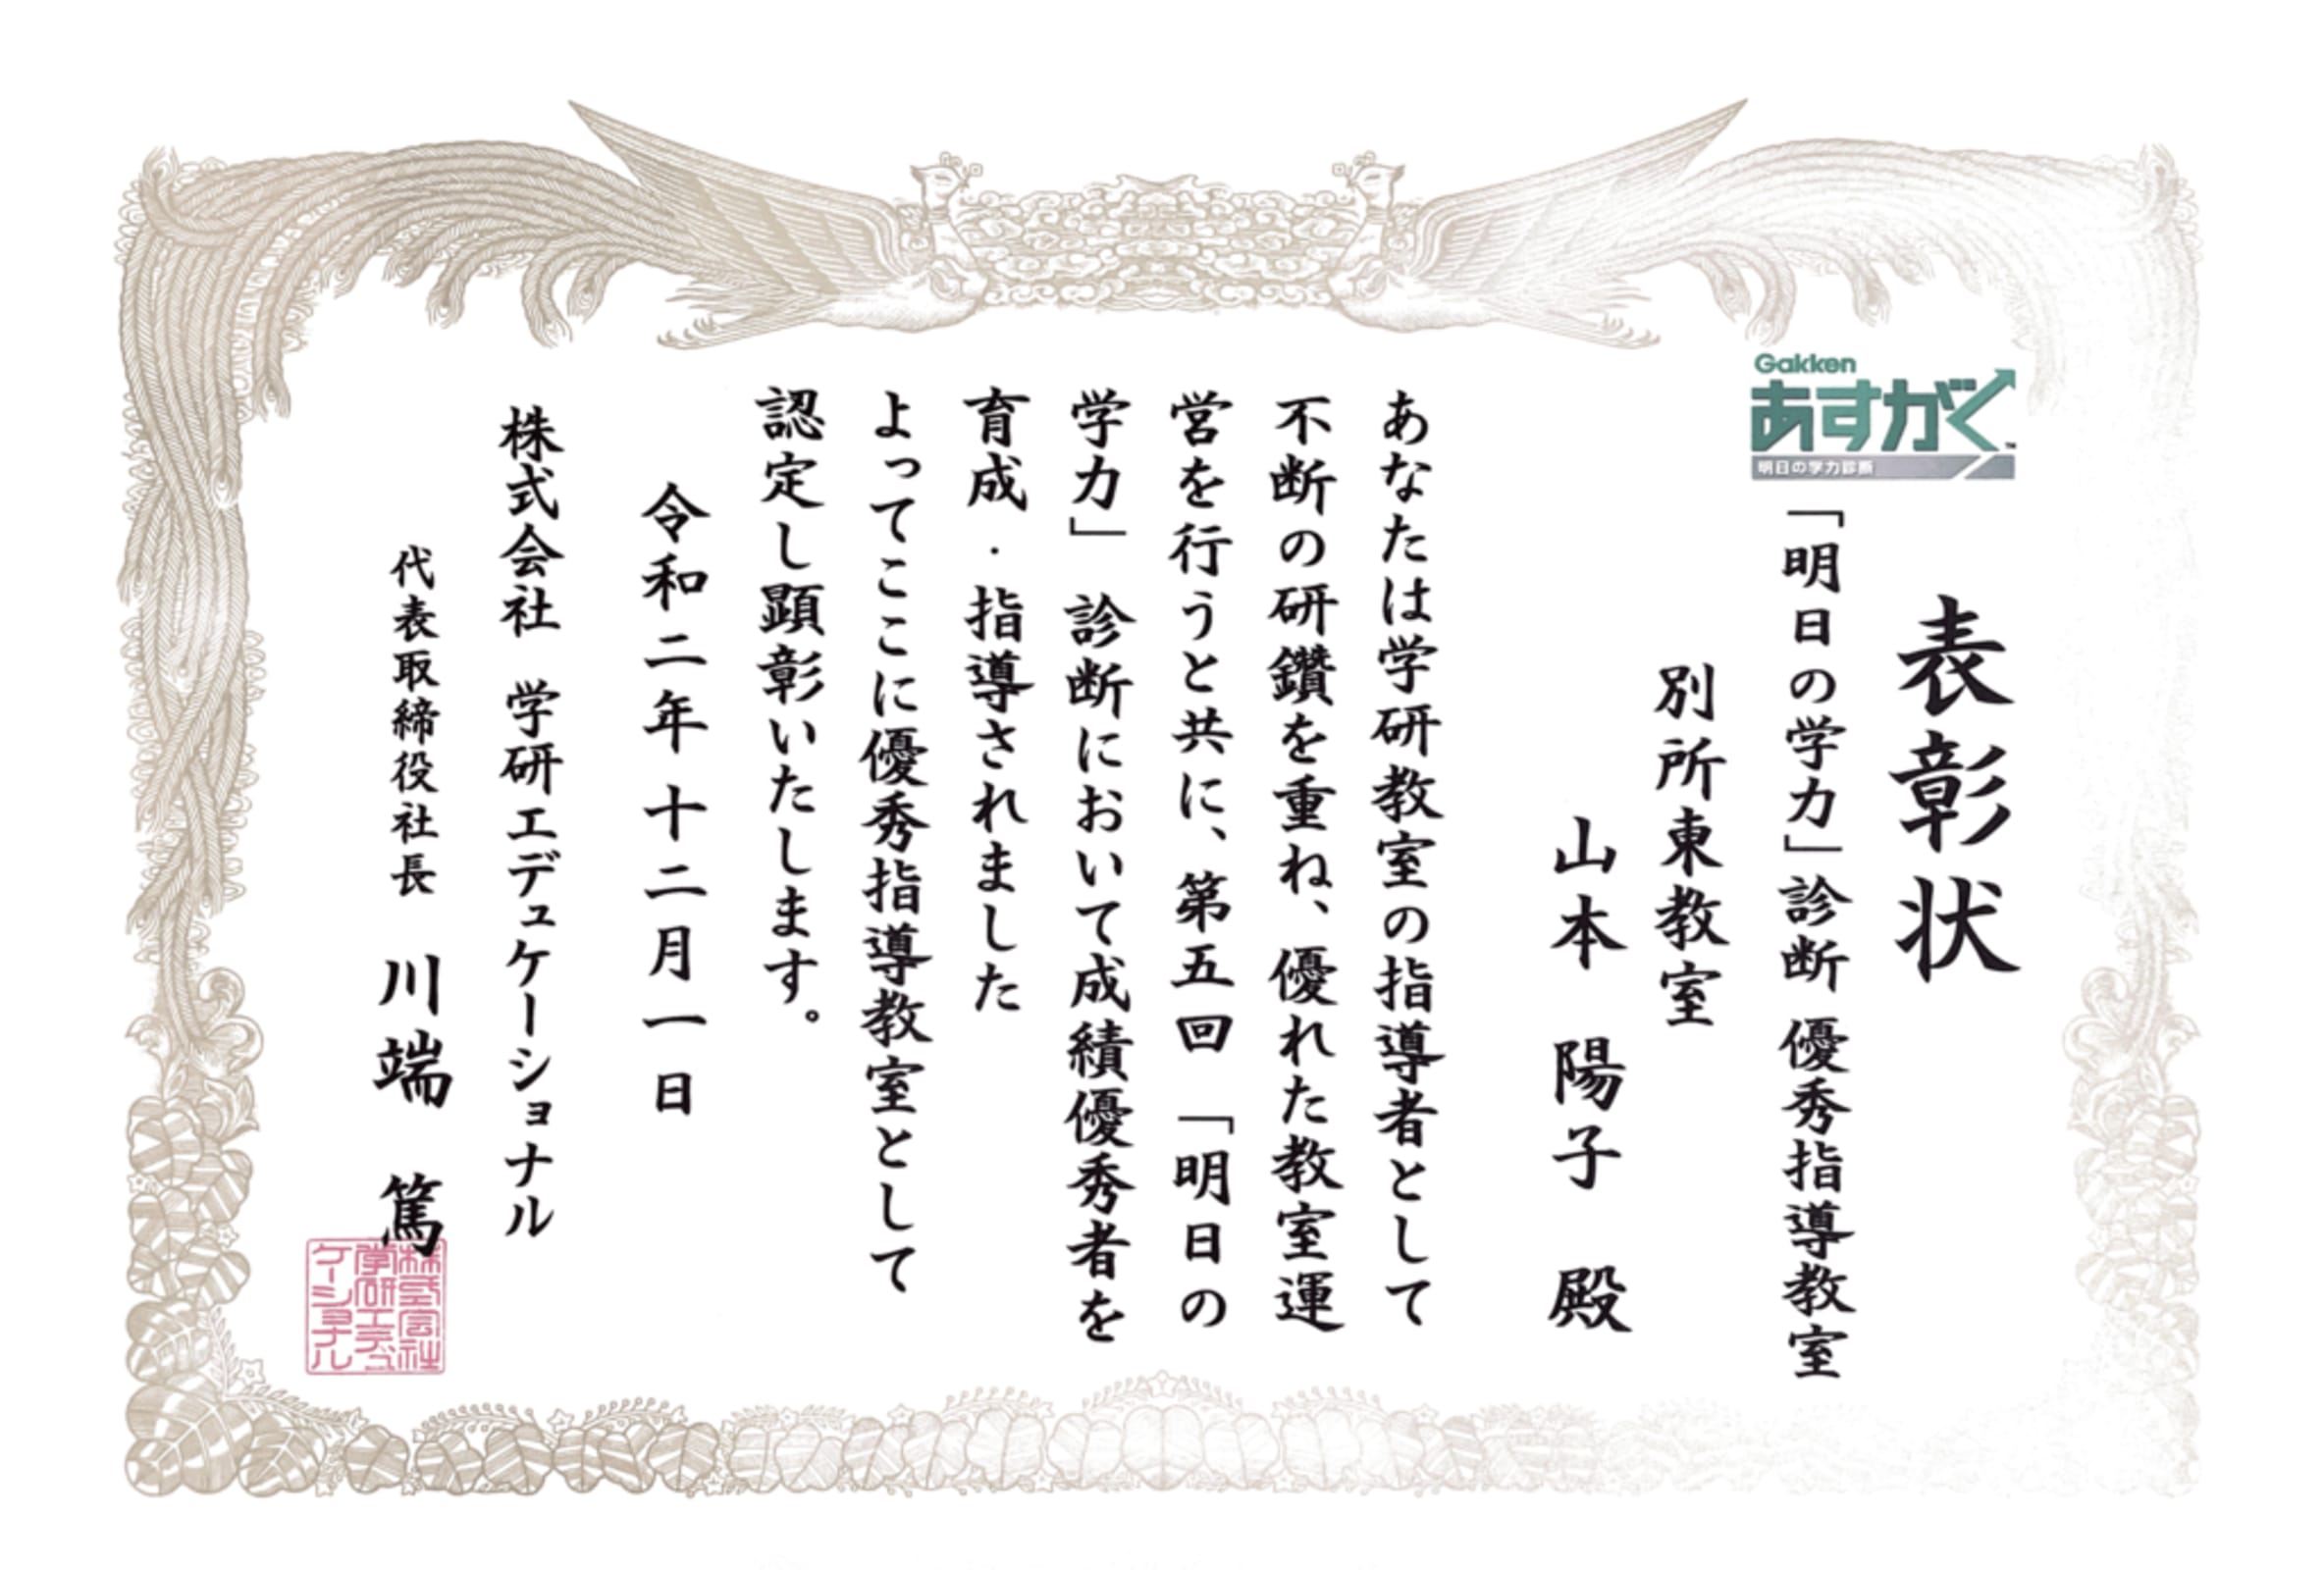 表彰状
Gakken
あすがく™
明日の学力診断
「明日の学力」診断 優秀指導教室
別所東教室
山本 陽子 殿
あなたは学研教室の指導者として
不断の研鑽を重ね、優れた教室運
営を行うと共に、第五回 「明日の
学力」 診断において成績優秀者を
育成・指導されました
よってここに優秀指導教室として
認定し顕彰いたします。
令和二年十二月一日
株式会社 学研エデュケーショナル
代表取締役社長 川端 篤
株式会社
学研エデュ
ケーショナル